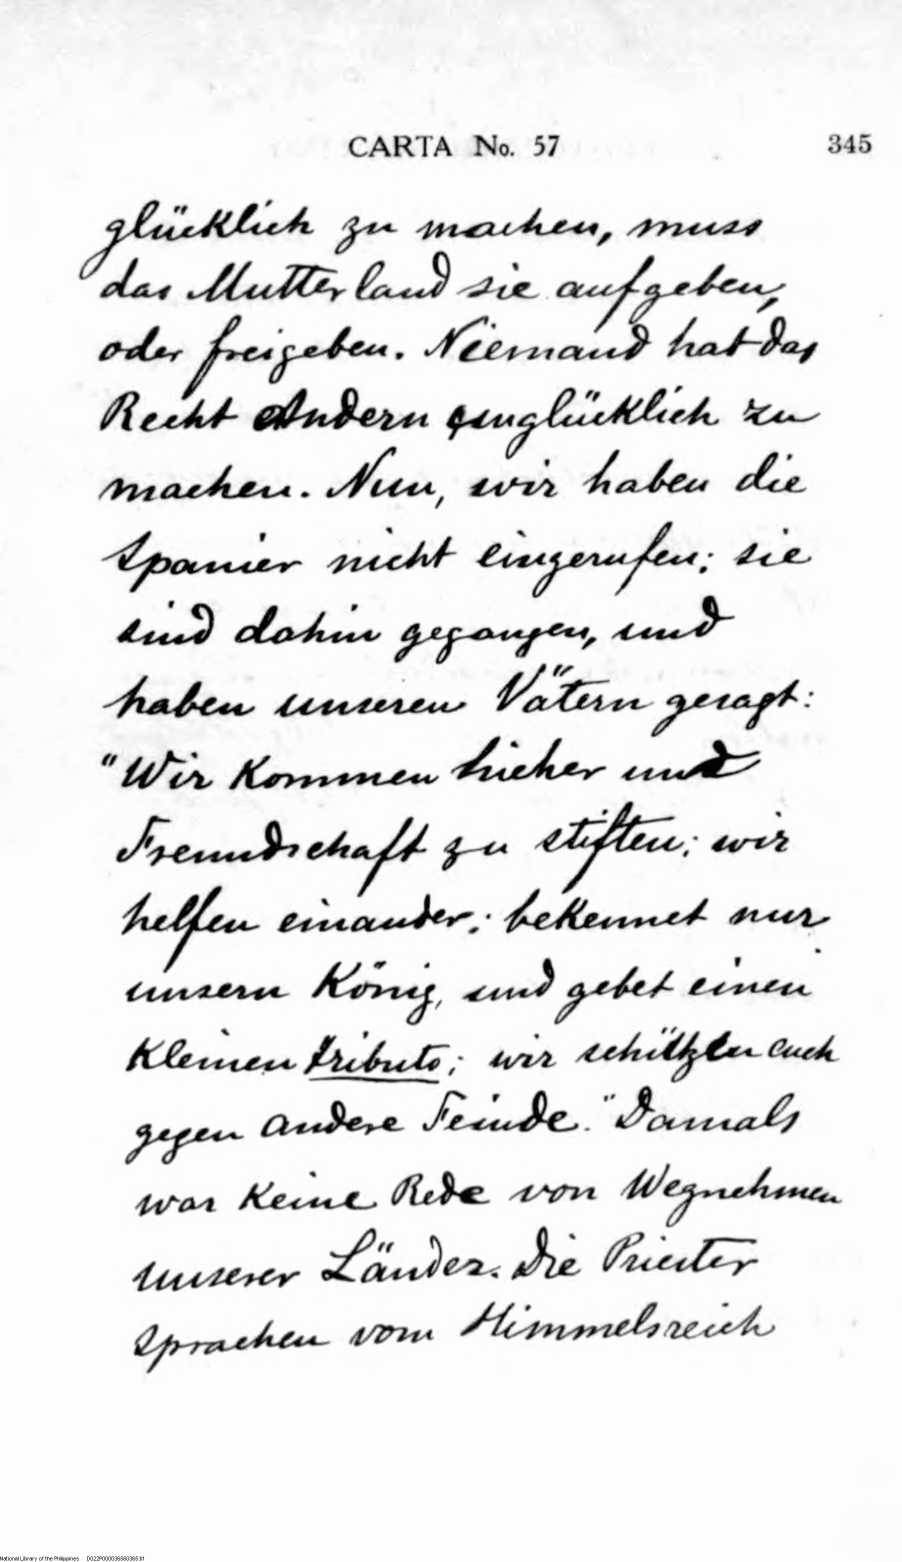 CARTA No. 57
345
glücklich zu machen, muss
das Mutterland sie aufgeben,
oder freigeben. Niemand hat das
Recht Andern unglücklich zu
machen. Nun, wir haben die
Spanier nicht eingerufen; sie
sind dahin gegangen, und
haben unseren Vätern gesagt:
"Wir kommen hieher und
Freundschaft zu stiften; wir
helfen einander; bekennet nur
unsern König, und gebet einen
kleinen tributo; wir schützen euch
gegen andere Feinde." Damals
war keine Rede von Wegnehmen
unserer Länder. Die Priester
sprachen vom Himmelsreich
National Library of the Philippines